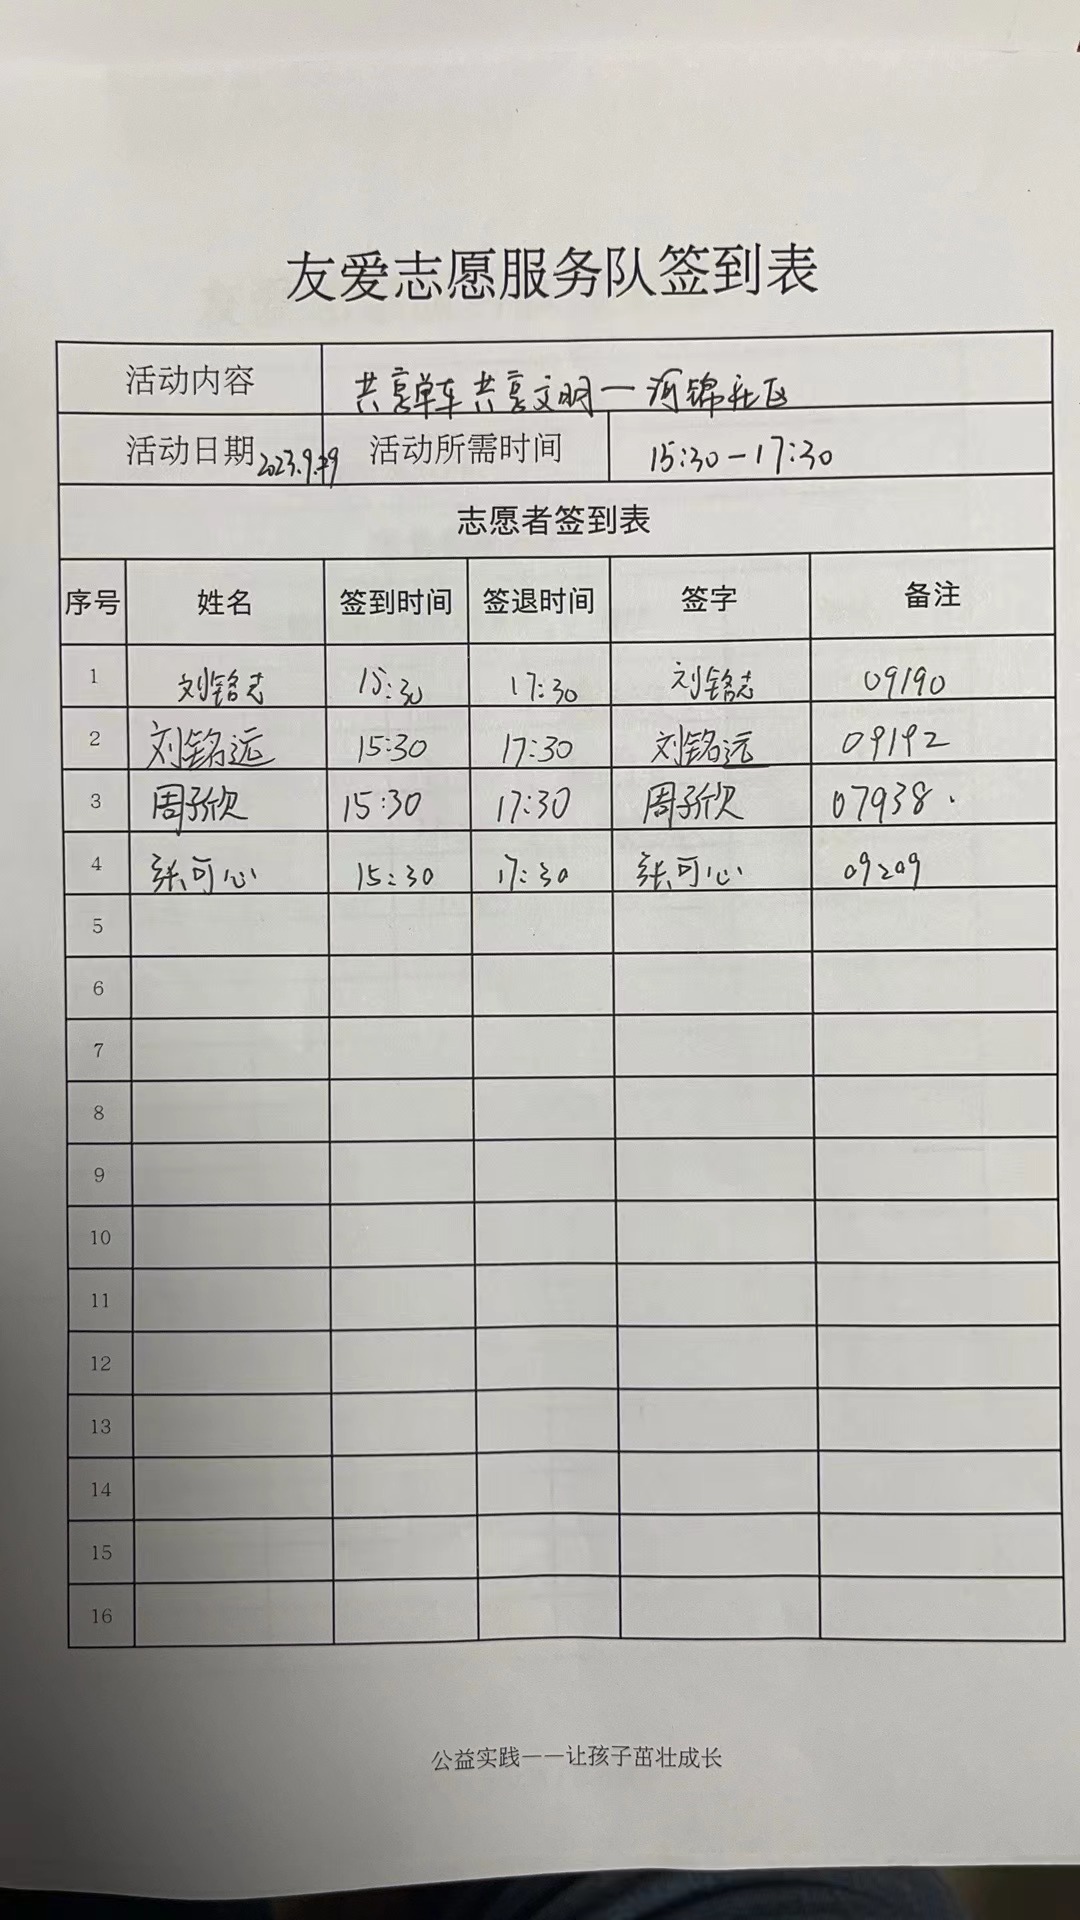 友爱志愿服务队签到表
活动内容 共享单车共享文明一河锦社区
活动日期 2023.9. 活动所需时间 15:30-17:30
志愿者签到表
序号 姓名 签到时间 签退时间 签字 备注
1 刘铭志 15:30 17:30 刘铭志 09190
2 刘铭远 15:30 17:30 刘铭远 09192
3 周子欣 15:30 17:30 周子欣 07938.
4 张可心 15:30 17:30 张可心 09209
5
6
7
8
9
10
11
12
13
14
15
16
公益实践——让孩子茁壮成长